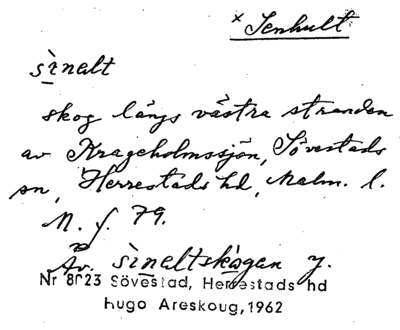 × Senhult
sìnalt
skog längs västra stranden
av Krageholmssjön, Sövestads
sn, Herrestads hd, Malm. l.
M. f. 79.
Äv. sìnaltskògan f.
Nr 8023 Sövestad, Herrestads hd
Hugo Areskoug, 1962